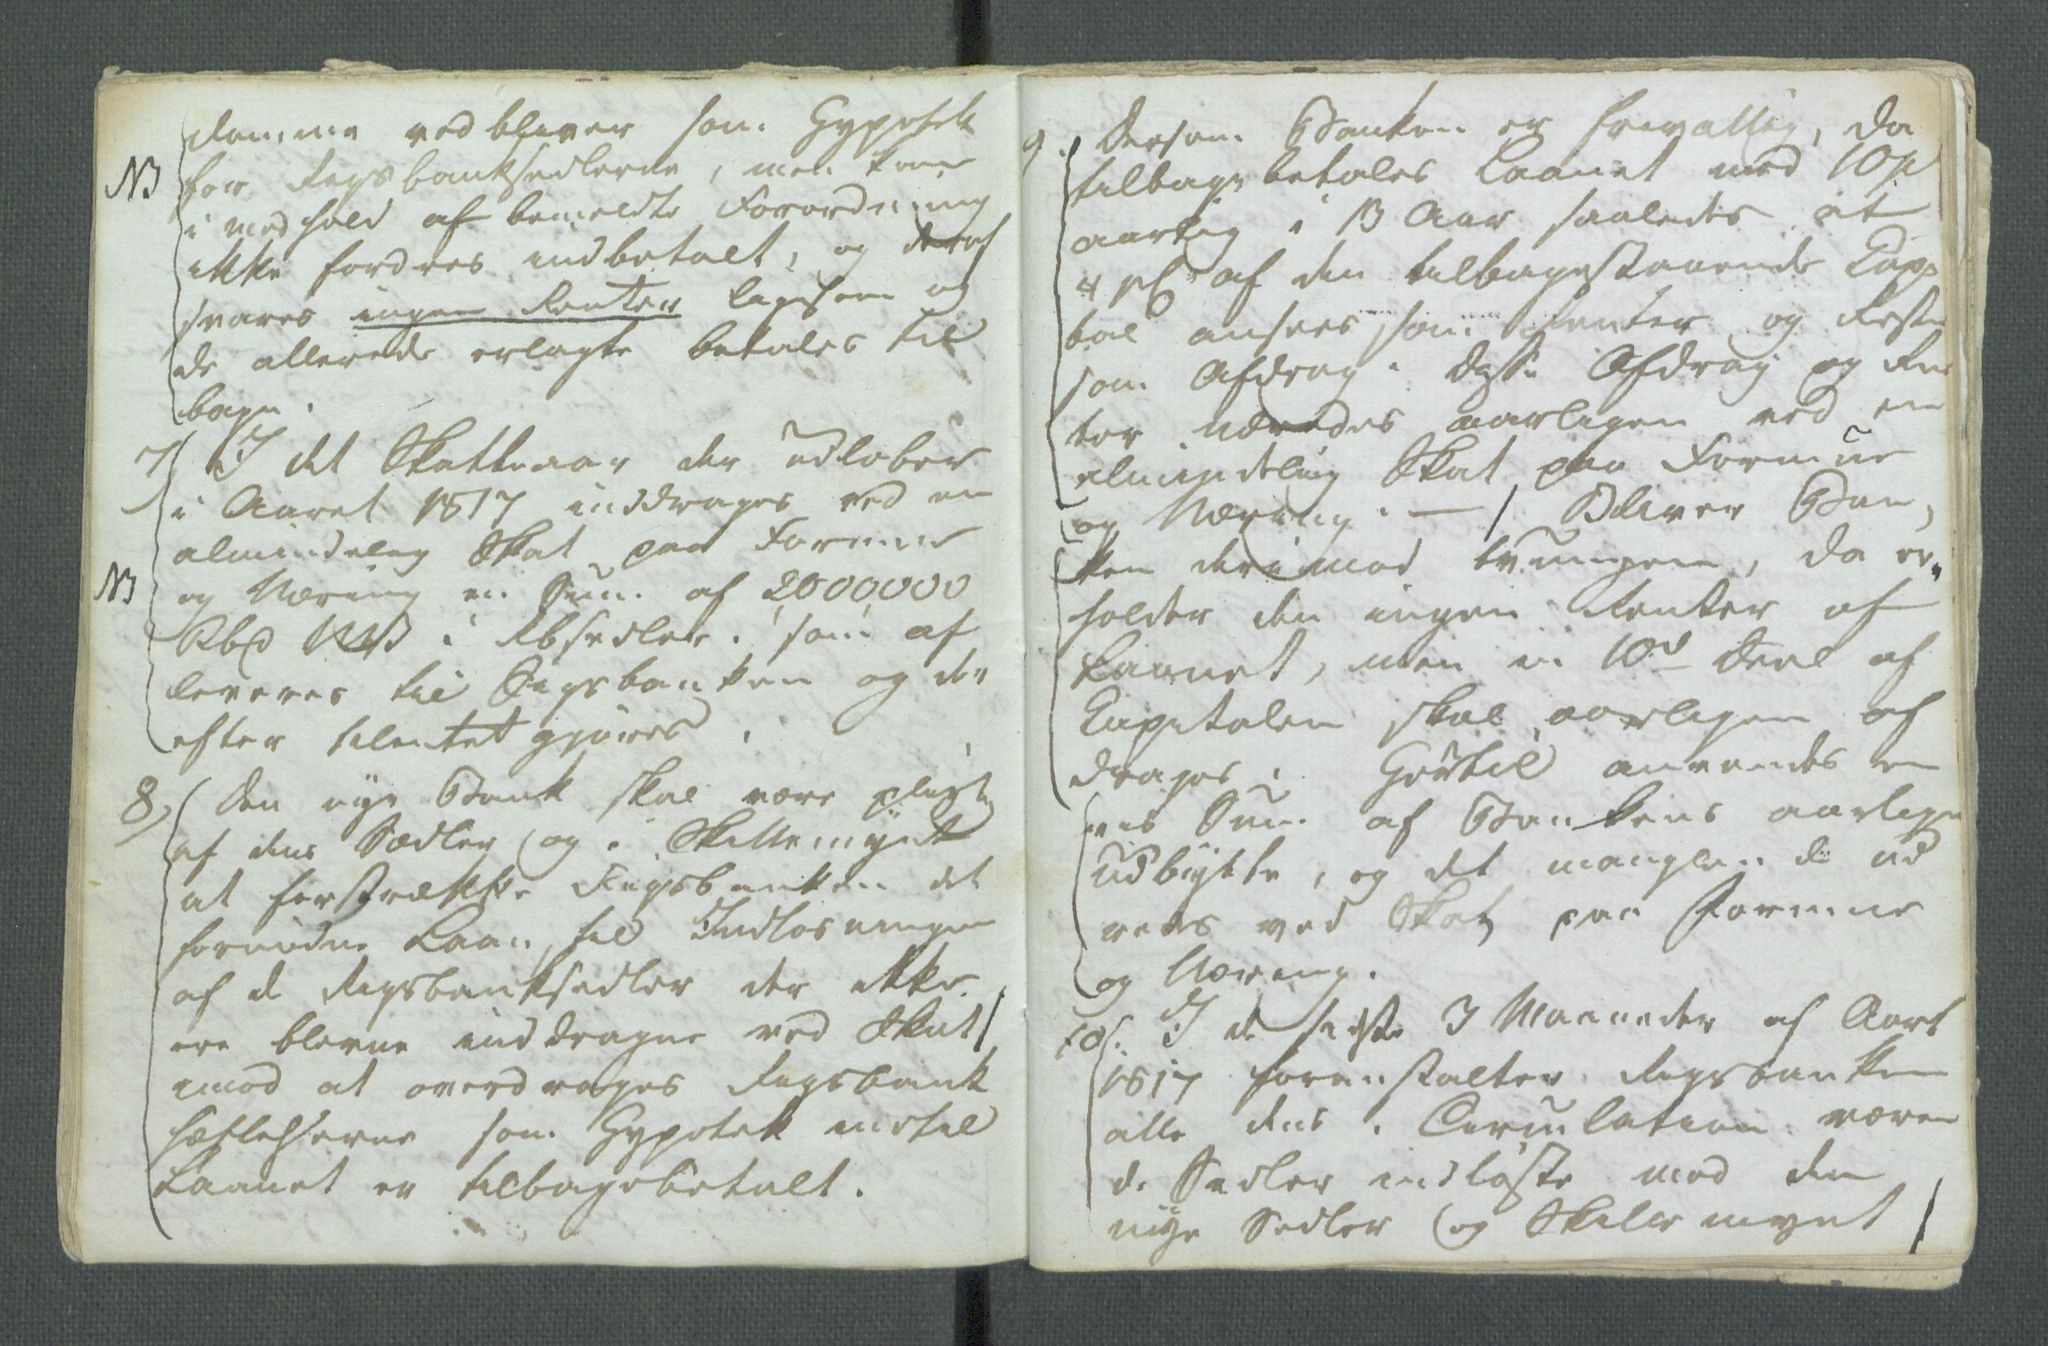 domme vedbliver som Hypothek
NB for Rigsbanksedlerne, men kan
i medhold af bemeldte Forordning
ikke fordres indbetalt, og deraf
svares ingen Renter ligesom og
de allerede erlagte betales til
bage.
7) I det Skatteaar der udløber
i Aaret 1817 inddrages ved en
almindelig Skat paa Formue
NB og Næring en Sum af 2000000
Rbd i Rbsedler. som af
leveres til Rigsbanken og der
efter tilintetgjøres.
8) Den nye Bank skal være pligtig
af dens Sedler og i Skillemynt
at forstrække Rigsbanken det
fornødne Laan til Indløsningen
af de Rigsbanksedler der ikke
ere blevne inddragne ved Skat
imod at overdrages Rigsbank
hæftelserne som Hypotek indtil
Laanet er tilbagebetalt.
9. Dersom Banken er frivillig, da
tilbagebetales Laanet med 10 p
aarlig i 13 Aar saaledes at
4 pC af den tilbagestaaende Capi
tal ansees som Renter og Resten
som Afdrag. Disse Afdrag og Ren
ter udredes aarligen ved en
almindelig Skat paa Formue
og Næring. — / Bliver Ban,
ken derimod tvungen, da er„
holder den ingen Renter af
Laanet, men en 10d Deel af
Capitalen skal aarligen af
drages. Hertil anvendes en
vis Sum af Bankens aarlige
Udbytte, og det manglende ud
redes ved Skat paa Formue
og Næring.
10. I de sidste 3 Maaneder af Aaret
1817 foranstalter Rigsbanken
alle dens i Circulation væren
de Sedler indløste med den
nye Sedler og Skillemynt